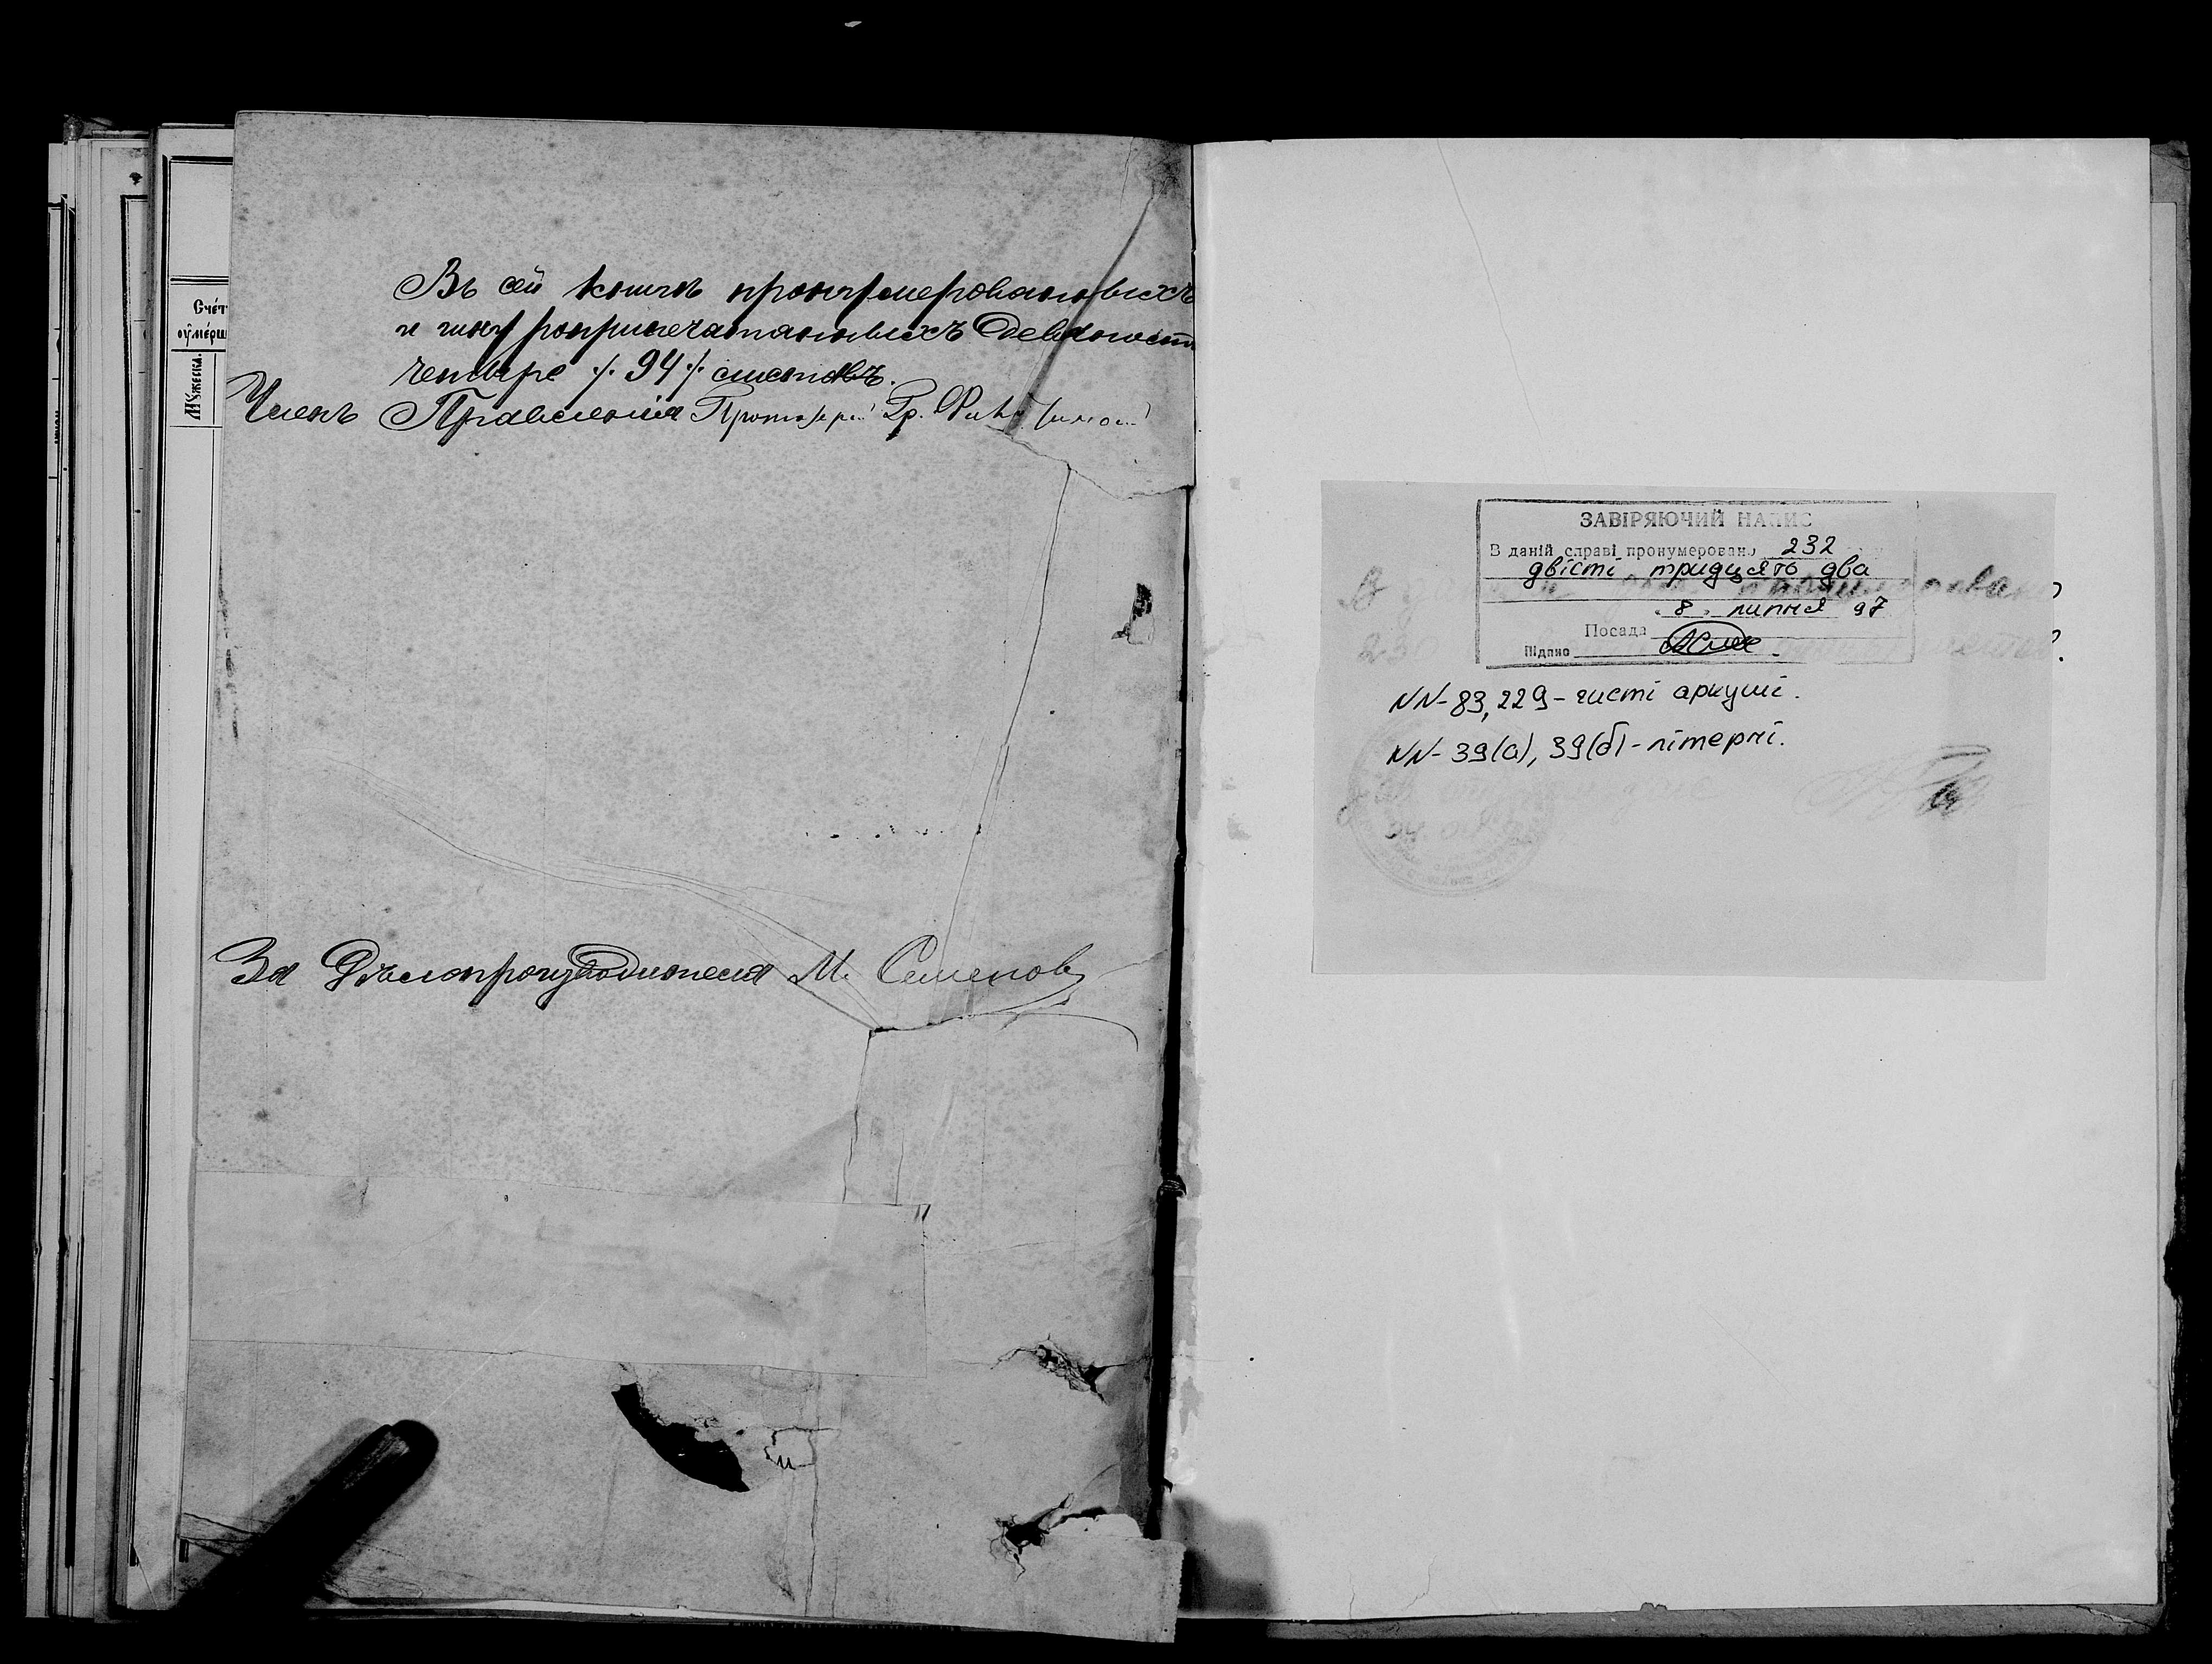 Счét
оу̂мéрш
Мꙋжеска.
Въ сей книгѣ пронумерованныхъ
и шнуроприпечатанныхъ девяносто
четыре /. 94 /. листовъ.
Членъ Правленія Протоіерей Гр.
За Дѣлопроизводителя М. Семенов
ЗАВІРЯЮЧИЙ НАПИС
В даній справі пронумеровано 232
двісті тридцять два
8 липня 97
Посада
Підпис
NN-83, 229 - чисті аркуші.
NN-39(а), 39(б) - літерні.